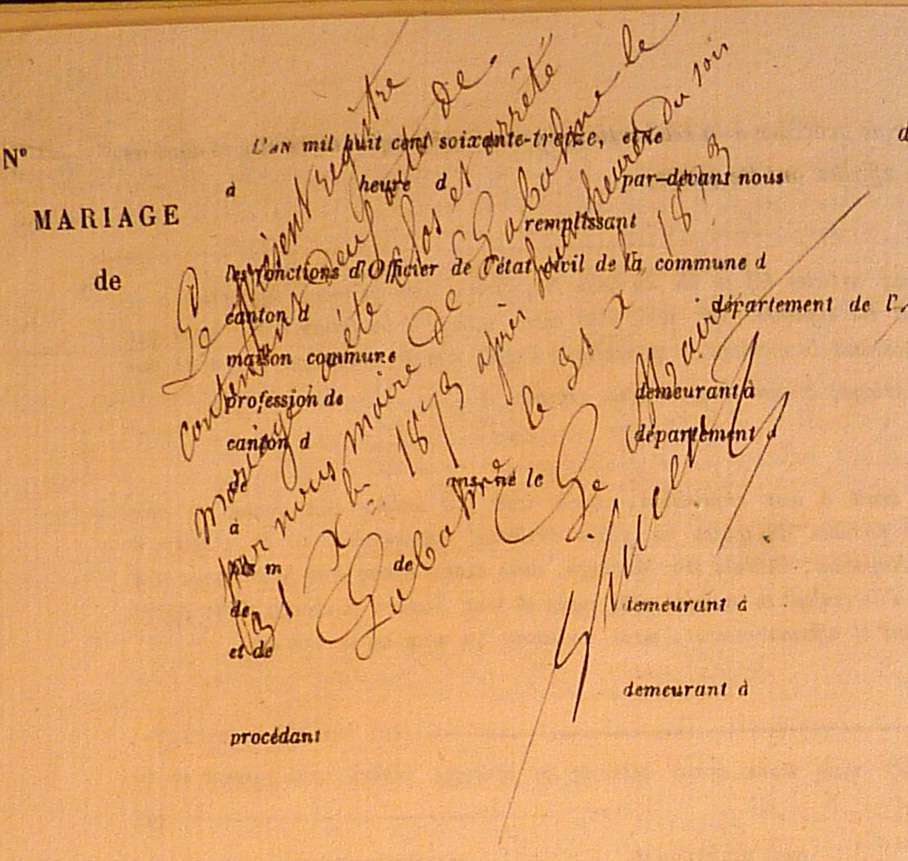 N°
MARIAGE
de
L'AN mil huit cent soixante-treize, et le d
à heure d par-devant nous
remplissant
les fonctions d'Officier de l'état civil de la commune d
canton d département de l'A
maison commune
profession de demeurant à
canton d département d
de né le
à
fils m de
de demeurant à
et de
demeurant à
procédant
Le présent registre
contenant neuf actes de
mariage a été clos et arrêté
par nous maire de Galatine le
31 Xbre 1873 après heures du soir
le 31 X 1873
Le Maire